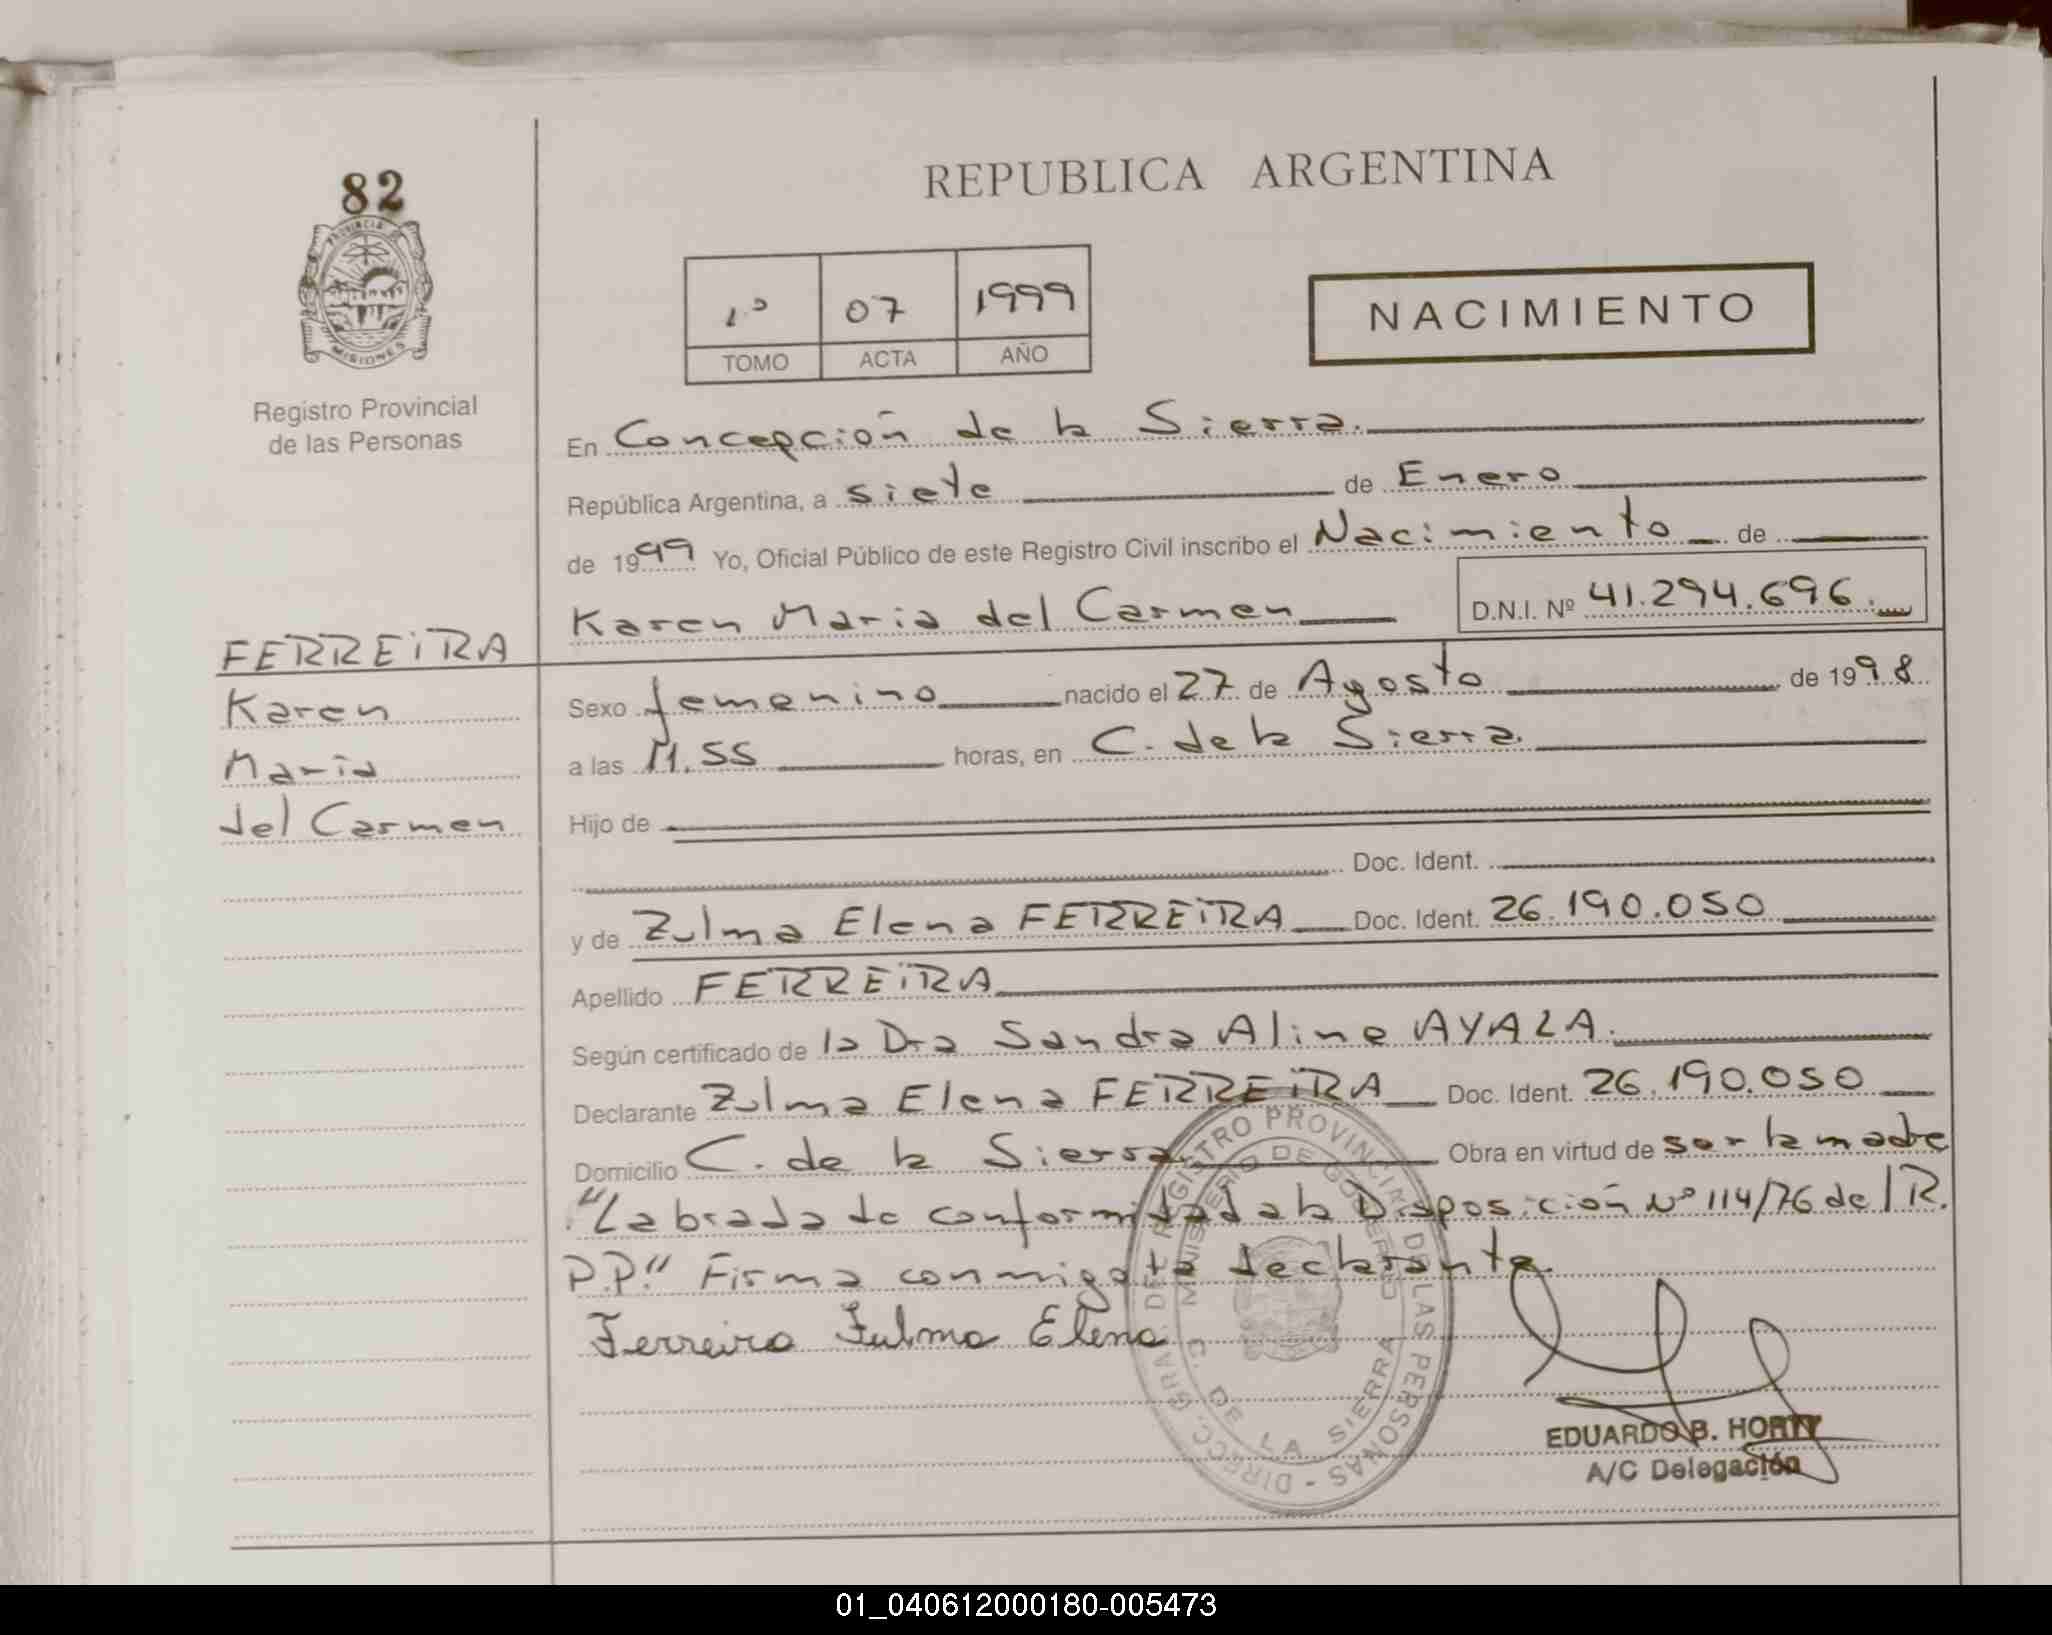 82
PROVINCIA DE
MISIONES
Registro Provincial
de las Personas
REPUBLICA ARGENTINA
1º 07 1999
TOMO ACTA AÑO
NACIMIENTO
En Concepción de la Sierra.
República Argentina, a siete de Enero
de 1999 Yo, Oficial Público de este Registro Civil inscribo el Nacimiento de
Karen Maria del Carmen D.N.I. Nº 41.294.696.
FERREIRA
Karen
Maria
del Carmen
Sexo femenino nacido el 27 de Agosto de 1998
a las 11.55 horas, en C. de la Sierra.
Hijo de
Doc. Ident.
y de Zulma Elena FERREIRA Doc. Ident. 26.190.050
Apellido FERREIRA
Según certificado de la Dra Sandra Aline AYALA.
Declarante Zulma Elena FERREIRA Doc. Ident. 26.190.050
Domicilio C. de la Sierra. Obra en virtud de ser la madre
"Labrada de conformidad a la Disposición Nº 114/76 del R.
P.P." Firma conmigo la declarante.
Ferreira Zulma Elena
DIRECC. GRAL. DEL REGISTRO PROVINCIAL DE LAS PERSONAS -
MINISTERIO DE GOBIERNO
C. DE LA SIERRA
EDUARDO B. HORTY
A/C Delegación
01_040612000180-005473